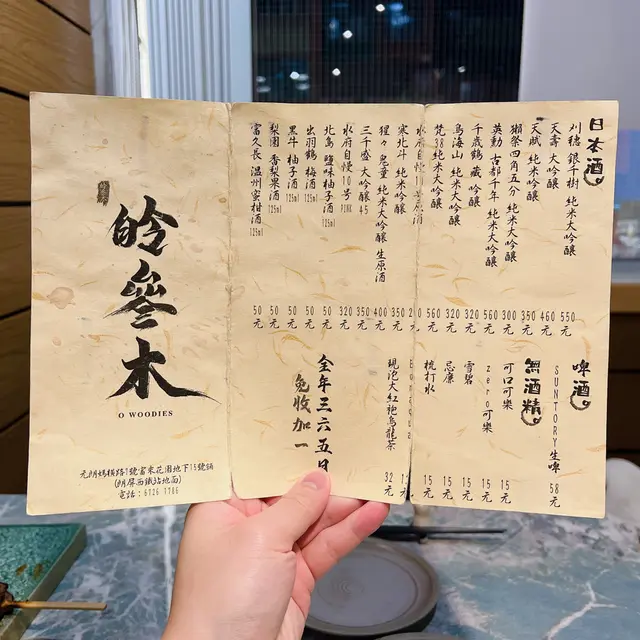 日本酒
刈穂 銀千樹 純米大吟釀 550元
天壽 大吟釀 460元
天賦 純米大吟釀 350元
獺祭四角五分 純米大吟釀 300元
英勳 古都千年 純米大吟釀 560元
千歳鶴 藏 吟釀 320元
鳥海山 純米大吟釀 320元
梵38 純米大吟釀 560元
水府自慢10号
寒北斗 純米吟釀 350元
猩々 鬼童 純米大吟釀 生原酒 400元
三千盛 大吟釀45 350元
水府自慢10号 PINK 320元
北島 鹽味柚子酒 125ml 50元
出羽鶴 梅酒 125ml 50元
黑牛 柚子酒 125ml 50元
梨園 香梨果酒 125ml 50元
富久長 温州蜜柑酒 125ml 50元
啤酒
SUNTORY生啤 58元
無酒精
可口可樂 15元
zero可樂 15元
雪碧 15元
忌廉 15元
梳打水 15元
現泡大紅袍烏龍茶 32元
全年三六五日
免收加一
吟叁木
O WOODIES
元朗媽橫路1號富來花園地下15號舖
(朗屏西鐵站地面)
電話：6126 1186